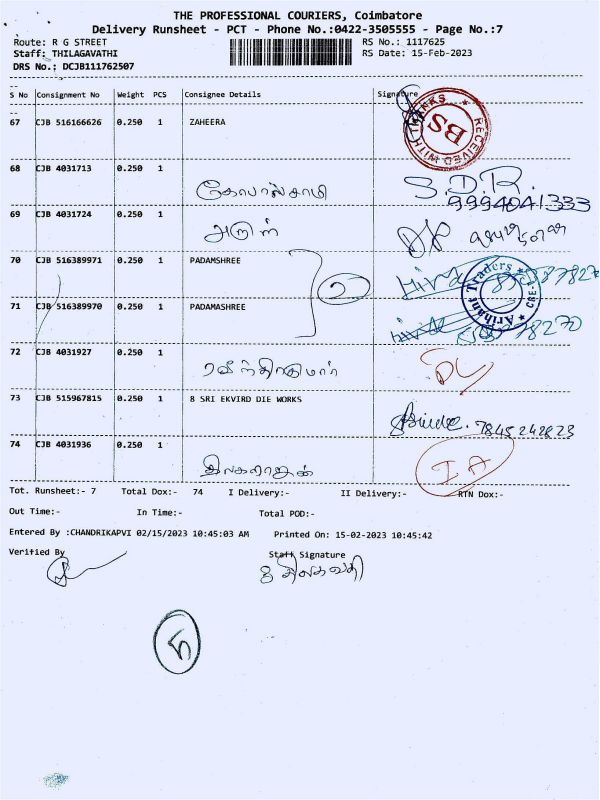 THE PROFESSIONAL COURIERS, Coimbatore
Delivery Runsheet - PCT - Phone No.:0422-3505555 - Page No.:7
Route: R G STREET RS No.: 1117625
Staff: THILAGAVATHI RS Date: 15-Feb-2023
DRS No.: DCJB111762507
S No Consignment No Weight PCS Consignee Details Signature
67 CJB 516166626 0.250 1 ZAHEERA
RECEIVED WITH THANKS BS
68 CJB 4031713 0.250 1
கோபால்சாமி S.D.R.
9994041333
69 CJB 4031724 0.250 1
அருள்
70 CJB 516389971 0.250 1 PADAMSHREE
2
Arihant Traders CBE-1
71 CJB 516389970 0.250 1 PADAMASHREE
72 CJB 4031927 0.250 1
ரவீந்திரகுமார்
73 CJB 515967815 0.250 1 8 SRI EKVIRD DIE WORKS
7845242823
74 CJB 4031936 0.250 1
IA
Tot. Runsheet:- 7 Total Dox:- 74 I Delivery:- II Delivery:- RTN Dox:-
Out Time:- In Time:- Total POD:-
Entered By :CHANDRIKAPVI 02/15/2023 10:45:03 AM Printed On: 15-02-2023 10:45:42
Veritied By Staff Signature
திலகவதி